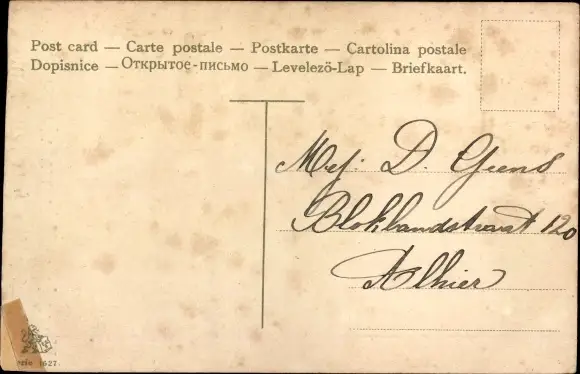 Post card — Carte postale — Postkarte — Cartolina postale
Dopisnice — Открытое-письмо — Levelező-Lap — Briefkaart.
Mej. D. Geens
Bloklandstraat 120
Alhier
1627.